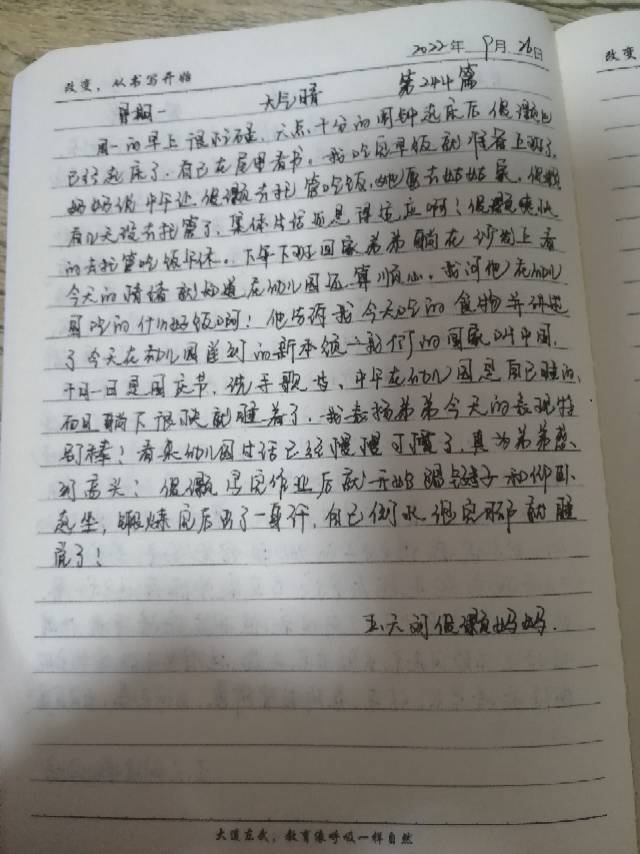 2022年 9月 26日
改变，从书写开始
改变
星期一 天气晴 第244篇
周一的早上很忙碌，六点二十分的闹钟起床后佩颖也
已经起床了，自己在屋里看书。我吃完早饭就准备上班了，
奶奶说中午让佩颖去托管吃饭，她要去姑姑家，佩颖
有几天没去托管了，集体生活还是得适应啊！佩颖愉快
的去托管吃饭午休。下午下班回家弟弟躺在沙发上看
今天的情绪就知道在幼儿园还算顺心，我问他在幼儿
园吃的什么好饭啊！他告诉我今天吃的食物并讲述
了今天在幼儿园学到的新本领，我们的国家叫中国，
十月一日是国庆节，洗手歌等、中午在幼儿园是自己睡的，
而且躺下很快就睡着了，我表扬弟弟今天的表现特
别棒！看来幼儿园生活已经慢慢习惯了，真为弟弟感
到高兴！佩颖写完作业后就开始踢毽子和仰卧
起坐，锻炼完后出了一身汗，自己倒水洗完脚就睡
觉了！
五、六 佩颖妈妈.
大道在我，教育像呼吸一样自然